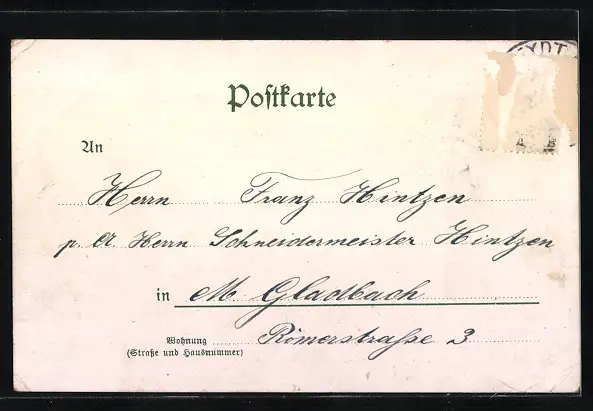 EYDT
Postkarte
An
Herrn Franz Hintzen
p. A. Herrn Schneidermeister Hintzen
in M. Gladbach
Wohnung Römerstraße 3
(Straße und Hausnummer)